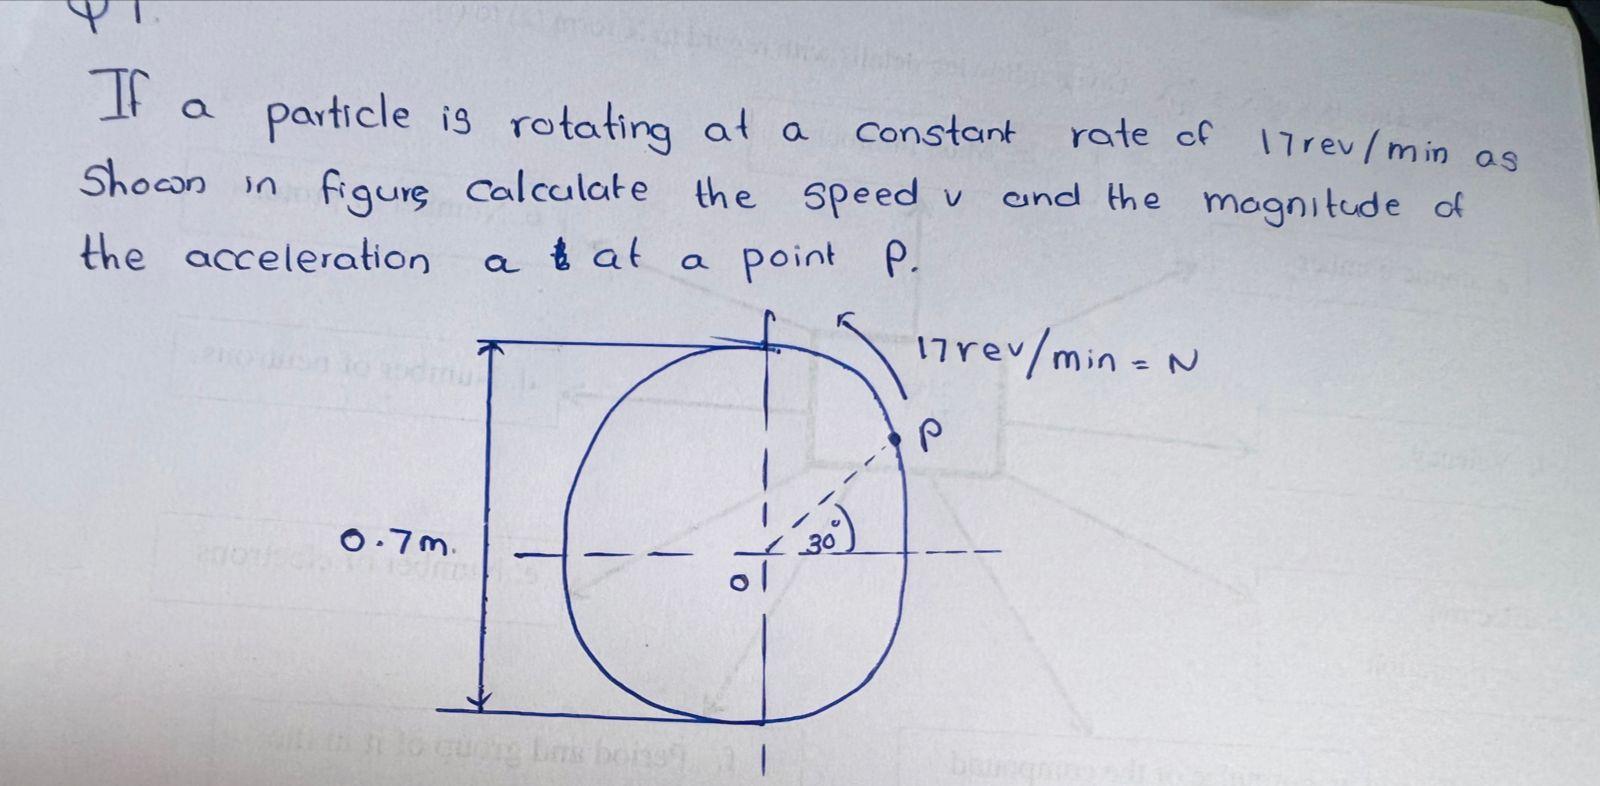 If a particle is rotating at a constant rate of 17rev/min as
Shown in figure calculate the speed v and the magnitude of
the acceleration a at a point P.
17rev/min = N
P
0.7m.
30°
O